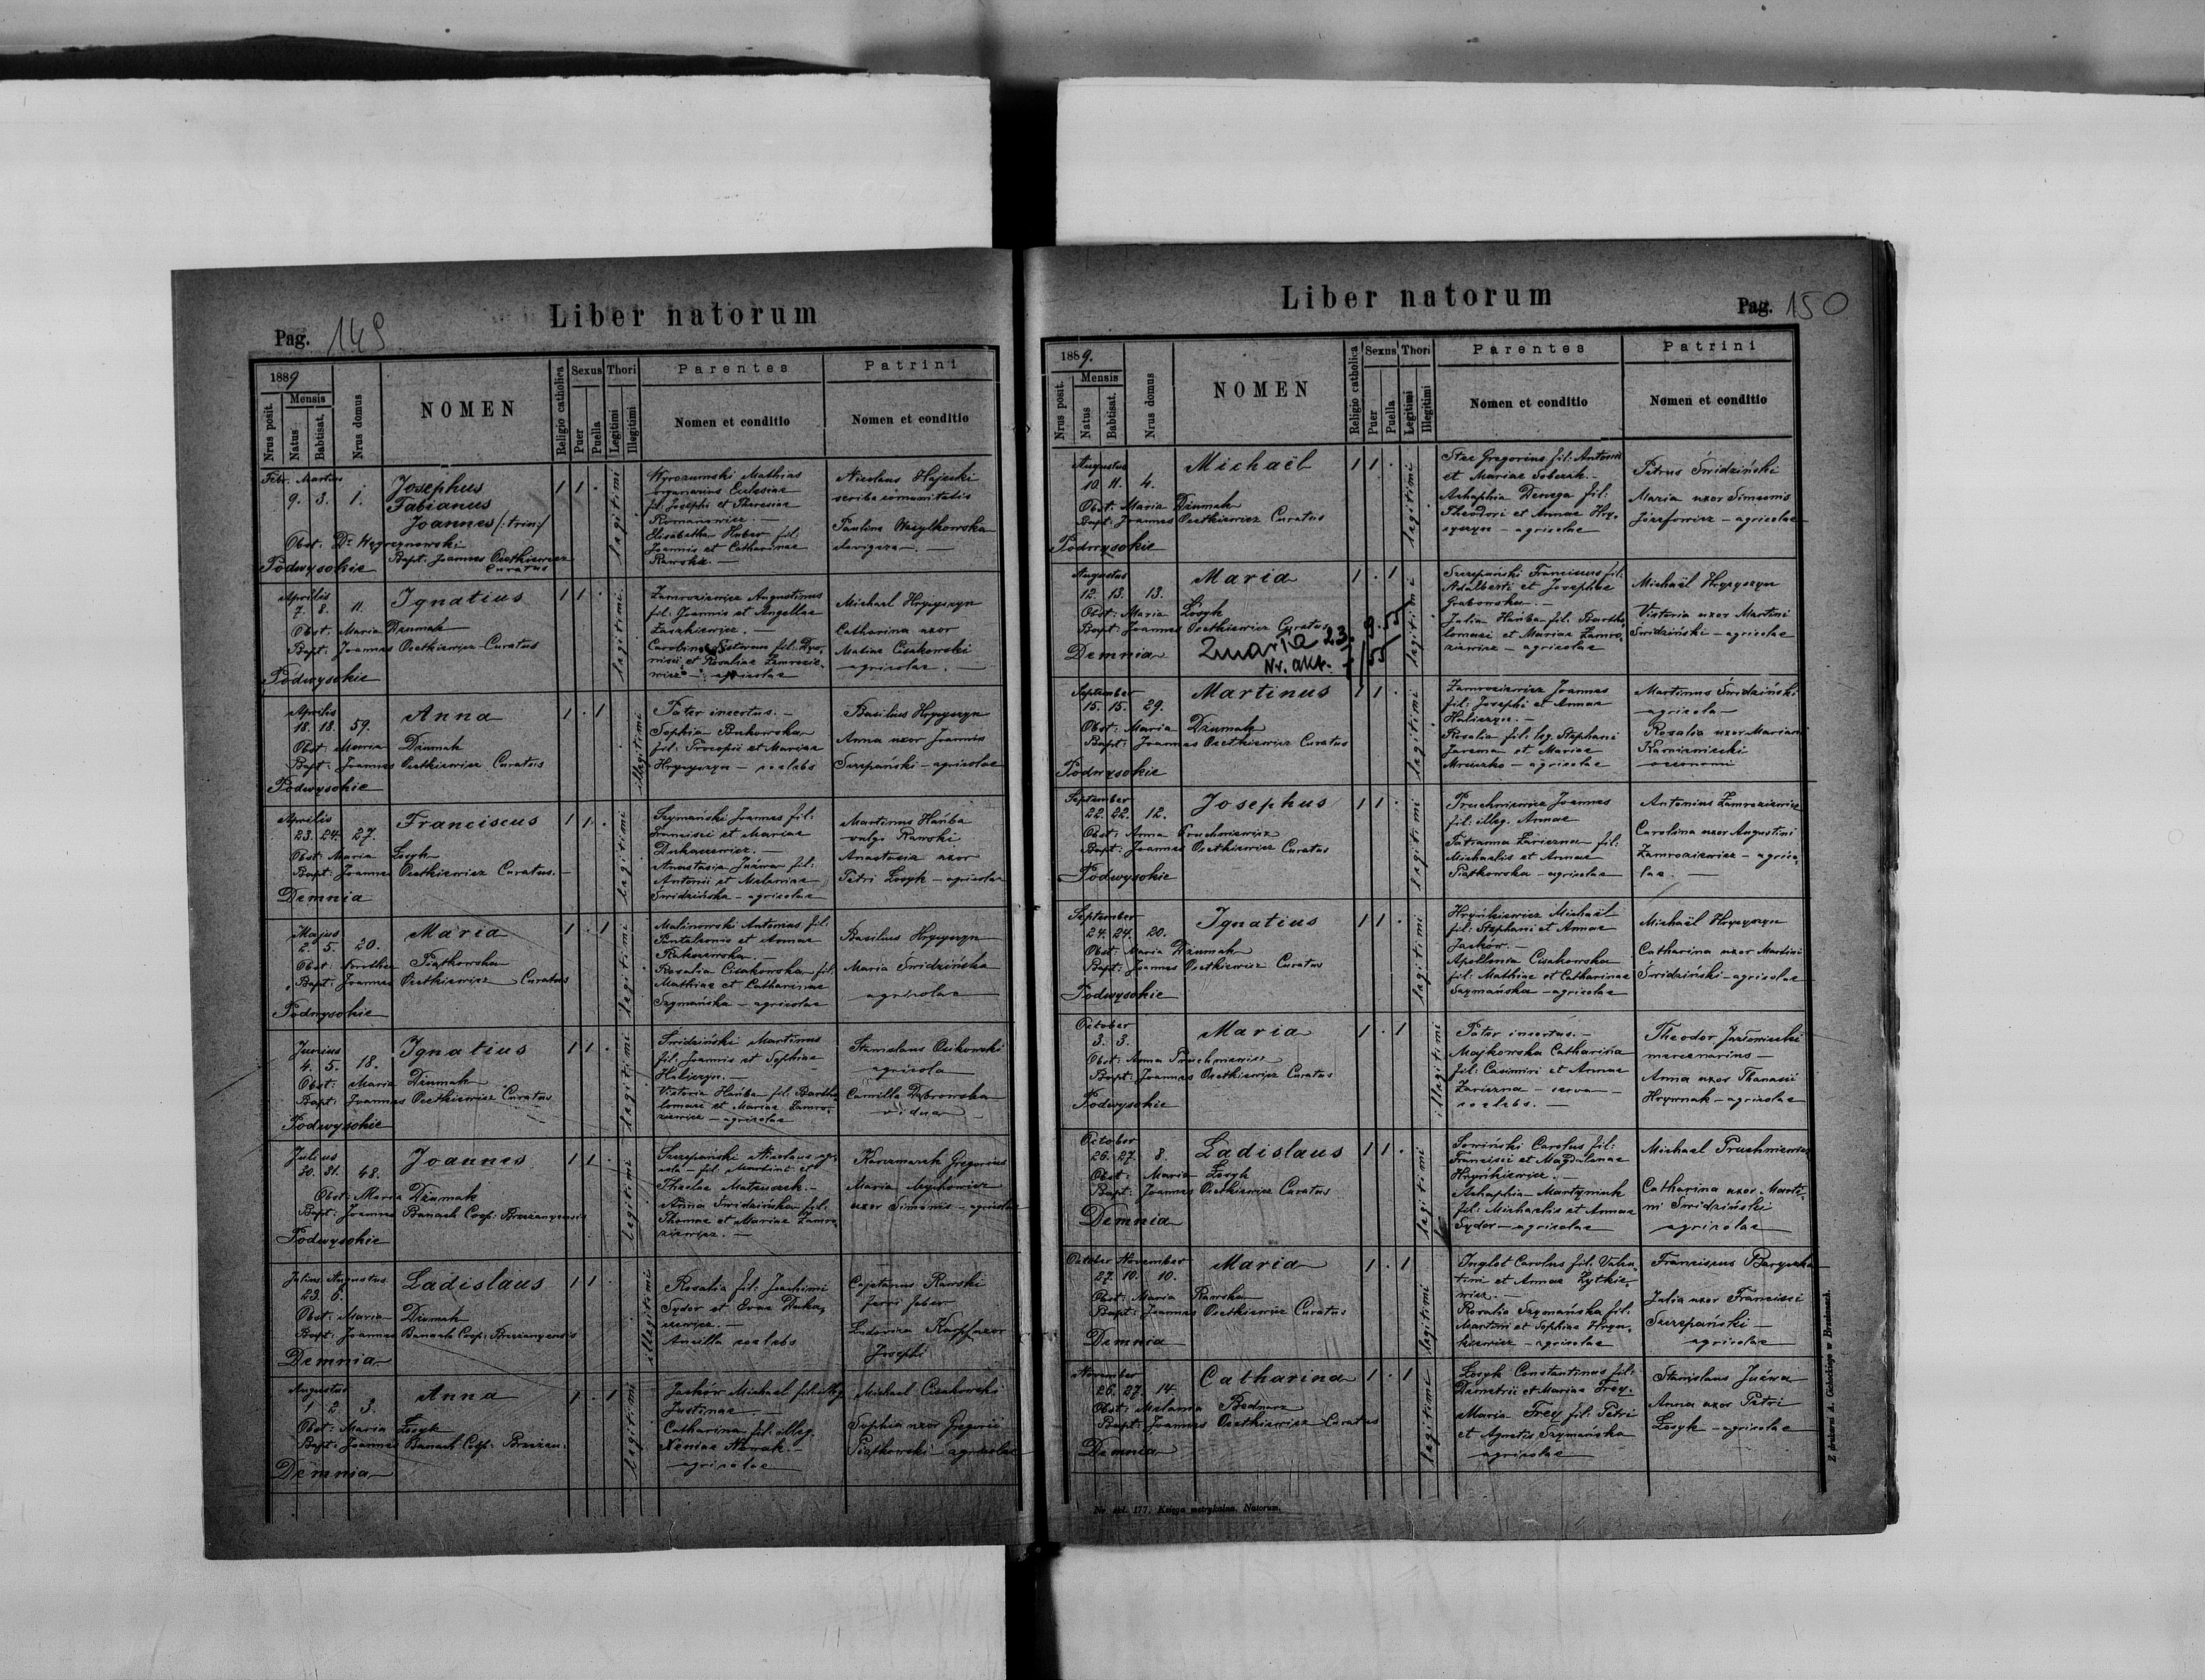 Liber natorum
Pag. 149
1889
Nrus posit.
Mensis
Natus
Babtisat.
Nrus domus
NOMEN
Religio catholica
Sexus
Puer
Puella
Thori
Legitimi
Illegitimi
Parentes
Nomen et conditio
Patrini
Nomen et conditio
Febr. Martius
9. 3. 1.
Josephus
Fabianus
Joannes /:trin:/
1 1 .
legitimi
Obst: Dr Węgrzynowski
Bapt: Joannes Osetkiewicz
Curatus
Podwysokie
Wyrozumski Mathias
organarius Ecclesiae
fil: Josephi et Theresiae
Romanowicz. —
Elisabetha Huber fil:
Joannis et Catharinae
Rawska —
Nicolaus Hajecki
scriba comunitatis
Paulina Wasylkowska
clavigera. —
Aprilis
7. 8. 11.
Ignatius
1 1 .
legitimi
Obst: Maria Dzumak
Bapt: Joannes Osetkiewicz Curatus
Podwysokie
Zamroziewicz Augustinus
fil: Joannis et Angellae
Zaszkiewicz. —
Carolina
wicz — agricolae
Michael Hrycyszyn
Catharina uxor
Matiae Cisakowski
agricolae. —
Aprilis
18. 18. 59.
Anna
1 . 1
illegitimi
Obst: Maria Dzumak
Bapt: Joannes Osetkiewicz Curatus
Podwysokie
Pater incertus. —
Sophia Bukowska
fil: Procopii et Mariae
Hrycyszyn — coelebs
Basilius Hrycyszyn
Anna uxor Joannis
Szczepański — agricolae
Aprilis
23. 24. 27.
Franciscus
1 1 .
legitimi
Obst: Maria Łosyk
Bapt: Joannes Osetkiewicz Curatus. —
Demnia
Szymański Joannes fil:
Francisci et Mariae
Dukaczewicz. —
Anastasia Juźwa fil:
Antonii et Melaniae
Świdzińska — agricolae
Martinus Hańba
vulgo Rawski
Anastasia uxor
Petri Łosyk — agricolae
Majus
2. 5. 20.
Maria
1 . 1
legitimi
Obst: Dorothea Piątkowska
Bapt: Joannes Osetkiewicz Curatus
Podwysokie
Malinowski Antonius fil:
Pantaleonis et Annae
Rakoczewska. —
Rosalia Cisakowska fil:
Mathiae et Catharinae
Szymańska — agricolae
Basilius Hrycyszyn
Maria Świdzińska
agricolae
Junius
4. 5. 18.
Ignatius
1 1 .
legitimi
Obst: Maria Dzumak
Bapt: Joannes Osetkiewicz Curatus
Podwysokie
Świdziński Martinus
fil: Joannis et Sophiae
Haliczyn. —
Victoria Hańba fil: Bartho-
lomaei et Mariae Zamro-
ziewicz — agricolae
Stanislaus Osikowski
agricola
Camilla Dąbrowska
vidua
Julius
30. 31. 48.
Joannes
1 1 .
legitimi
Obst: Maria Dzumak
Bapt: Joannes Banach Coop: Brzeżanyensis
Podwysokie
Szczepański Nicolaus agri-
cola — fil: Martini et
Theclae Matuszek. —
Anna Świdzińska fil:
Thomae et Mariae Zamro-
ziewicz. —
Kaczmarek Gregorius
Maria
uxor Simonis — agricolae
Julius Augustus
23. 6.
Ladislaus
1 1 .
illegitimi
Obst: Maria Dzumak
Bapt: Joannes Banach Coop: Brzeżanyensis
Demnia
Rosalia fil: Joachimi
Sydor et Evae Duka-
czewicz. —
Ancilla coelebs
Cajetanus Rawski
ferri faber
Ludovica Karpf uxor
Josephi
Augustus
1 2 3.
Anna
1 . 1
legitimi
Obst: Maria Łosyk
Bapt: Joannes Banach Coop: Brzeżan:
Demnia
Jaśków Michael fil: illeg.
Justinae —
Catharina fil: illeg.
Xeniae Nowak. —
agricolae
Michael Cisakowski
Sophia uxor Gregorii
Piątkowski agricolae
Liber natorum
Pag. 150
1889.
Nrus posit.
Mensis
Natus
Babtisat.
Nrus domus
NOMEN
Religio catholica
Sexus
Puer
Puella
Thori
Legitimi
Illegitimi
Parentes
Nomen et conditio
Patrini
Nomen et conditio
Augustus
10. 11. 4.
Michaël
1 1 .
legitimi
Obst: Maria Dzumak
Bapt: Joannes Osetkiewicz Curatus
Podwysokie
Stec Gregorius fil: Antonii
et Mariae Sobczak. —
Achaphia Denega fil:
Theodori et Annae Hry-
cyszyn — agricolae
Petrus Świdziński
Maria uxor Simeonis
Józefowicz — agricolae
Augustus
12. 13. 13.
Maria
1 . 1
legitimi
Obst: Maria Łosyk
Bapt: Joannes Osetkiewicz Curatus
Demnia
Zmarła 23. 9. 55
Nr. akt.
Szczepański Franciscus fil:
Adalberti et Josephae
Grabowska. —
Julia Hańba fil: Bartho-
lomaei et Mariae Zamro-
ziewicz — agricolae
Michaël Hrycyszyn
Victoria uxor Martini
Świdziński — agricolae
September
15. 15. 29.
Martinus
1 1 .
legitimi
Obst: Maria Dzumak
Bapt: Joannes Osetkiewicz Curatus
Podwysokie
Zamroziewicz Joannes
fil: Josephi et Annae
Haliczyn. —
Rosalia fil: leg. Stephani
Jarema et Mariae
Mruczko — agricolae
Martinus Świdziński
agricola —
Rosalia uxor Mariani
oeconomi
September
22. 22. 12.
Josephus
1 1 .
legitimi
Obst: Anna Pruchniewicz
Bapt: Joannes Osetkiewicz Curatus
Podwysokie
Pruchniewicz Joannes
fil: illeg. Annae
Tatianna Zariczna fil:
Michaelis et Annae
Piątkowska — agricolae
Antonius Zamroziewicz
Carolina uxor Augustini
Zamroziewicz — agrico-
lae. —
September
24. 24. 20.
Ignatius
1 1 .
legitimi
Obst: Maria Dzumak
Bapt: Joannes Osetkiewicz Curatus
Podwysokie
Hryńkiewicz Michaël
fil: Stephani et Annae
Jaśków. —
Apollonia Cisakowska
fil: Mathiae et Catharinae
Szymańska — agricolae
Michaël Hrycyszyn
Catharina uxor Martini
Świdziński — agricolae
October
3. 3.
Maria
1 . 1
illegitimi
Obst: Anna Pruchniewicz
Bapt: Joannes Osetkiewicz Curatus
Podwysokie
Pater incertus. —
Majkowska Catharina
fil: Casimiri et Annae
Zariczna — serva —
coelebs. —
Theodor
mercenarius —
Anna uxor Thanasii
Hrywnak — agricolae
October
26. 27. 8.
Ladislaus
1 1 .
legitimi
Obst: Maria Łosyk
Bapt: Joannes Osetkiewicz Curatus
Demnia
Sowiński Carolus fil:
Francisci et Magdalenae
Hryńkiewicz. —
Achaphia Martyniuk
fil: Michaelis et Annae
Sydor — agricolae
Michael Pruchniewicz
Catharina uxor Marti-
ni Świdziński
agricolae
October November
27. 10. 10.
Maria
1 . 1
legitimi
Obst: Maria Rawska
Bapt: Joannes Osetkiewicz Curatus
Demnia
Inglot Carolus fil: Valen-
tini et Annae Zytkie-
wicz. —
Rosalia Szymańska fil:
Martini et Sophiae Hryn-
kiewicz — agricolae
Franciscus
Julia uxor Francisci
Szczepański —
agricolae
November
26. 27. 14.
Catharina
1 . 1
legitimi
Obst: Melania Bednarz
Bapt: Joannes Osetkiewicz Curatus
Demnia
Łosyk Constantinus fil:
Demetrii et Mariae Frey.
Maria Frey fil: Petri
et Agnetis Szymańska
agricolae
Stanislaus Juźwa
Anna uxor Petri
Łosyk — agricolae
Z drukarni A. Cichockiego w Brzeżanach.
Nr. skł. 177. Księga metrykalna. Natorum.